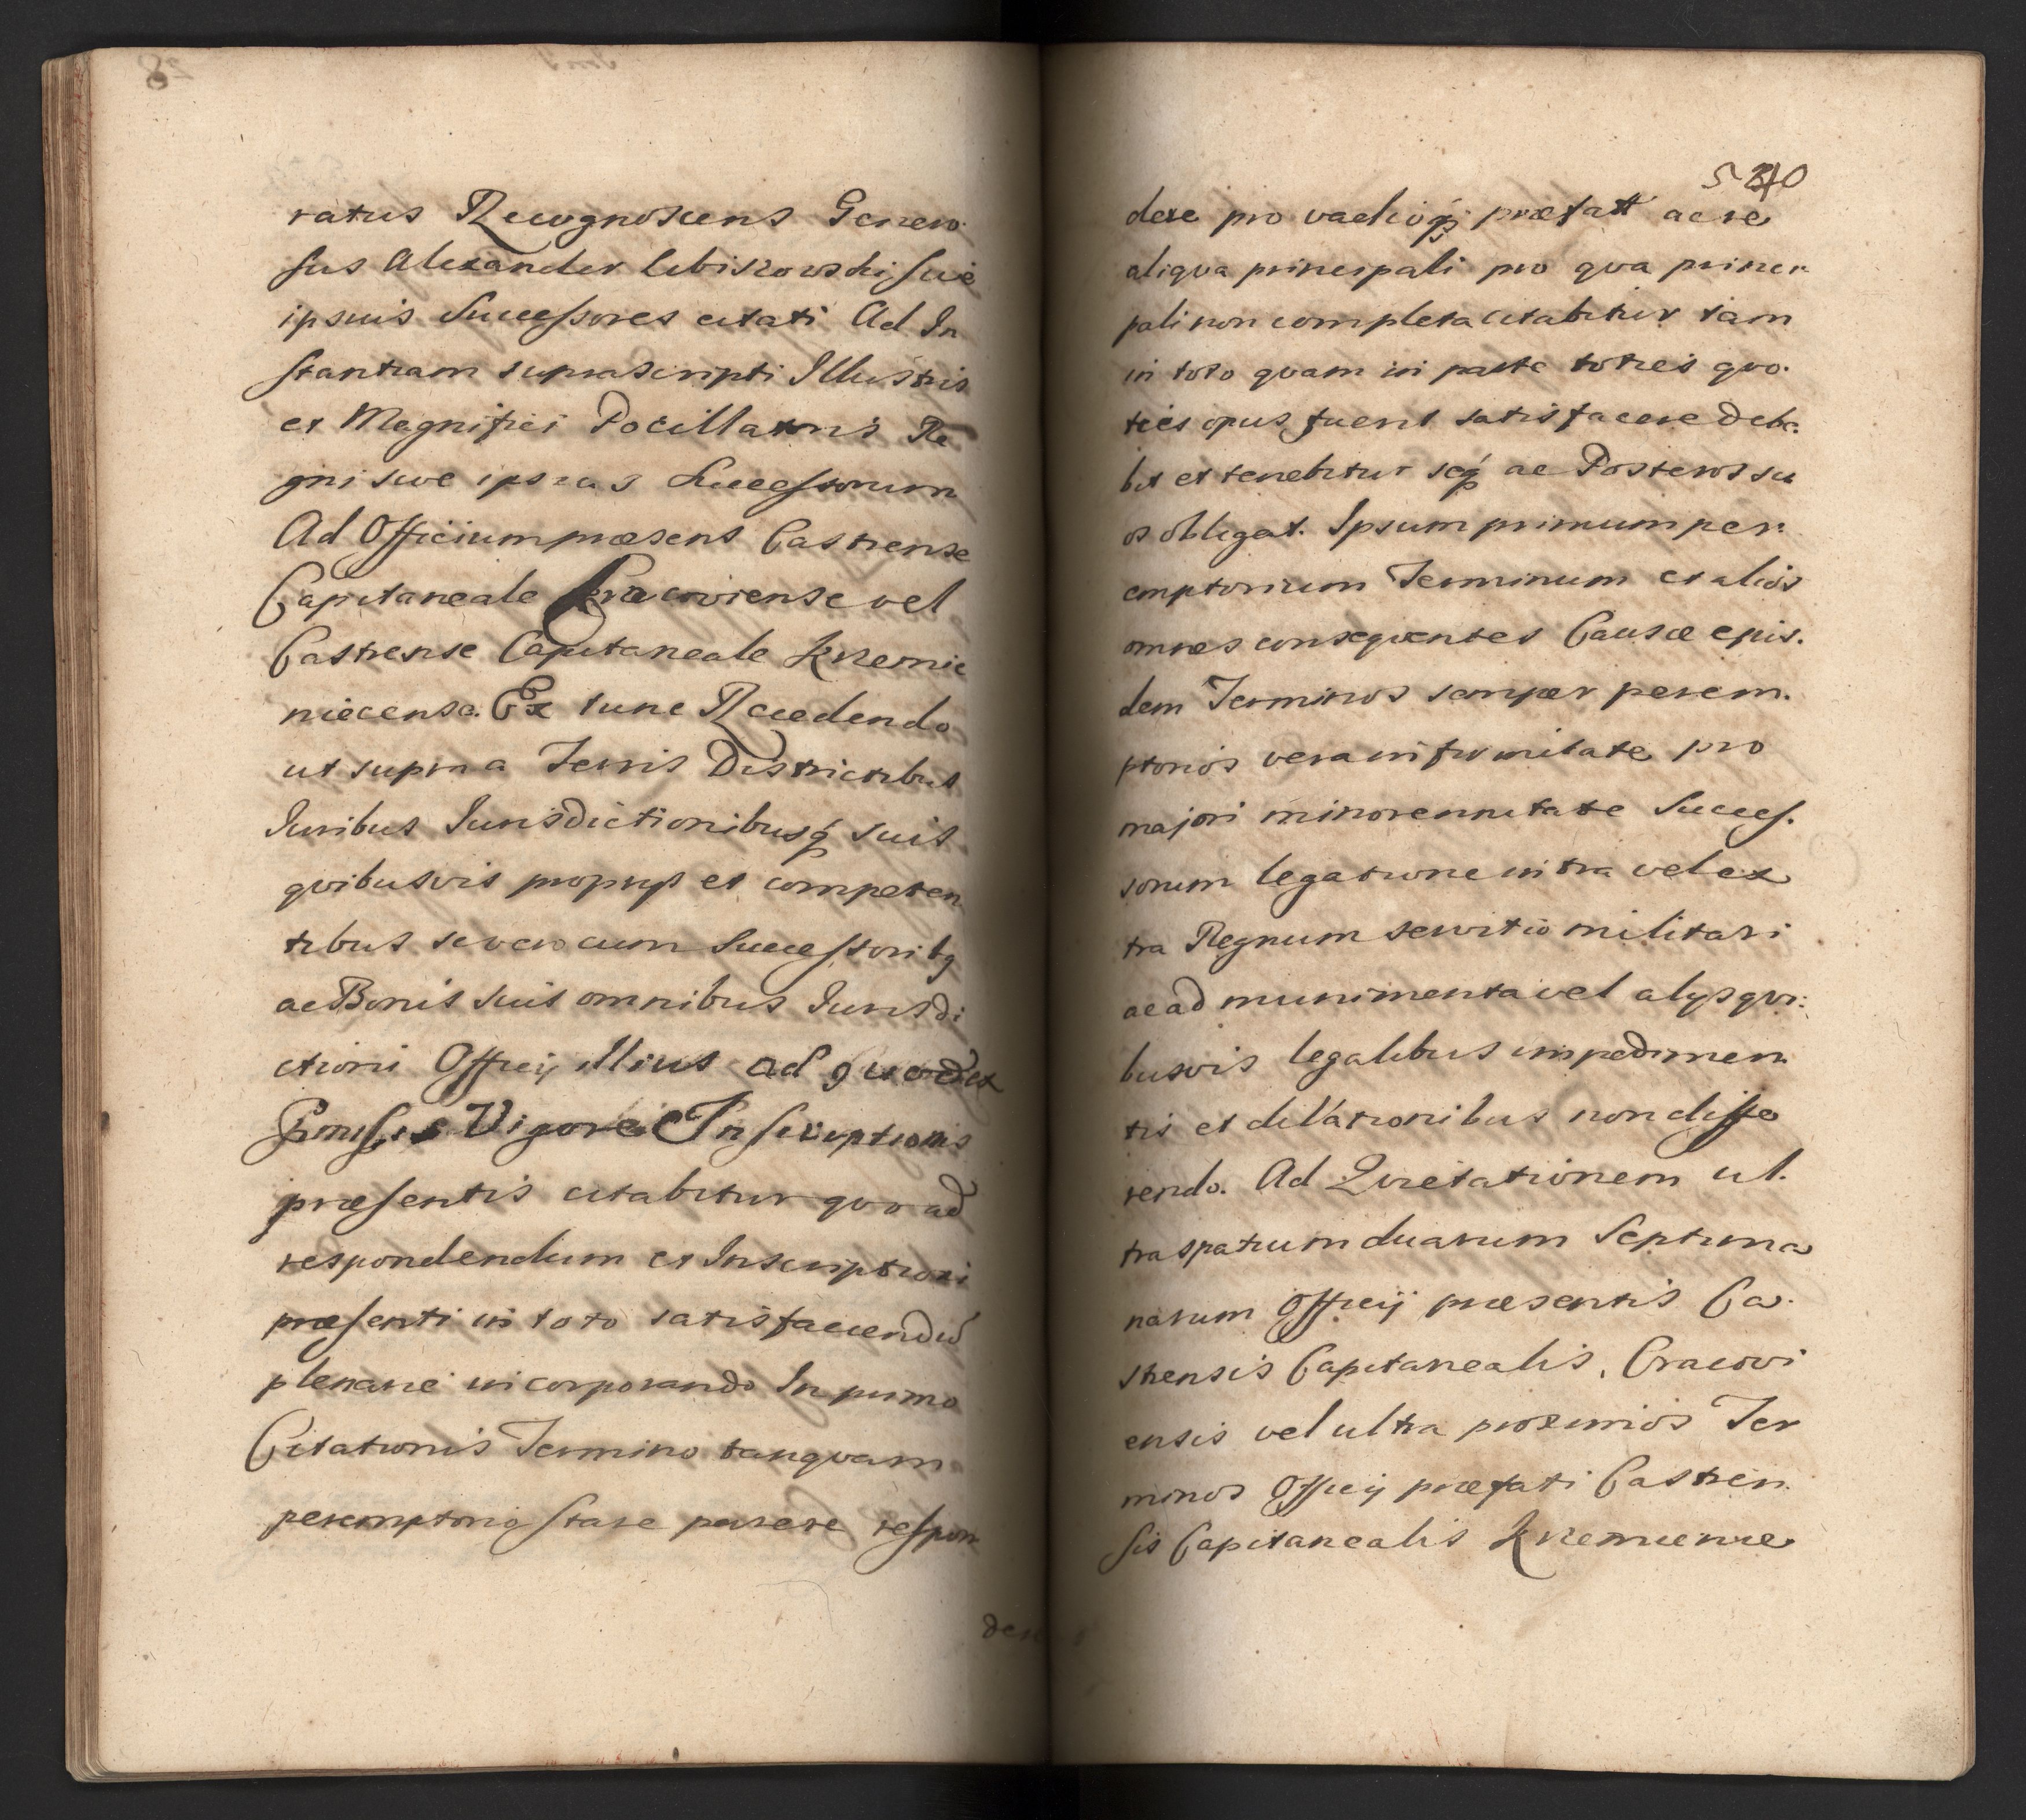 ratus Recognoscens Genero
sus Alexander Cebiszowskij sive
ipsius Successores citati Ad In
stantiam suprascripti Illustris
et Magnifici Pocillatoris Re
gni sive ipsius Successorum
Ad Officium præsens Castrense
Capitaneale Cracoviense vel
Castrense Capitaneale Krzemie
niecense. Ex tunc Recedendo
ut supra a Terris Districtibus
Iuribus Iurisdictionibusq suis
qvibusvis proprijs et competen
tibus se vero cum Successoribq
ac Bonis suis omnibus Iurisdi
ctioni Officij illius ad quod ex
Præmissis Vigore Inscriptionis
præsentis citabitur qvo ad
respondendum et Inscriptioni
præsenti in toto satisfaciendū
plenarie incorporando In primo
Citationis Termino tanqvam
peremptorio stare parere respon
dere
5 240
dere pro vadioq præfatt ac re
aliqva principali pro qva princi
pali non completa citabitur tam
in toto qvam in parte toties qvo.
ties opus fuerit satisfacere debe.
bit et tenebitur seq ac Posteros su
os obligat. Ipsum primum per.
emptorium Terminum et alios
omnes conseqventes Causæ ejus.
dem Terminos semper perem.
ptorios vera infirmitate pro
majori minorennitate Succes.
sorum legatione intra vel ex
tra Regnum servitio militari
ac ad munimenta vel alijs qvi:
busvis legalibus impedimen
tis et dilationibus non diffe
rendo. Ad Qvietationem ul.
tra spatium duarum Septima
narum Officij præsentis Ca.
strensis Capitanealis, Cracovi
ensis vel ultra proximos Ter
minos Officij præfati Castren.
sis Capitanealis Krzemienie